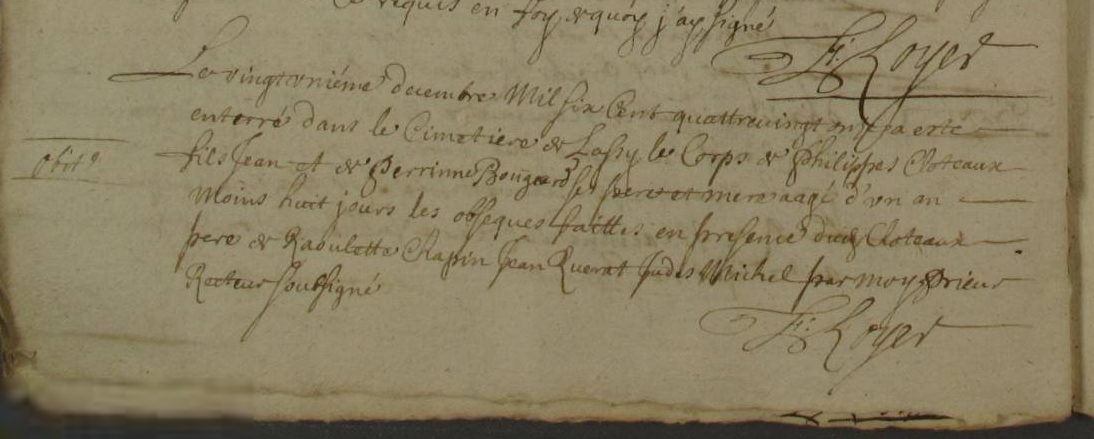 Ce requis en foy de quoy j'ay signé
F: L. Royer
Le vingt onziéme decembre Mil six Cent quattrevingt onze a esté
enterré dans le Cimetiere de Lassy le Corps de Philippes Cloteaux
obit
fils Jean et de Perrinne Bougeard ses pere et mere aagé d'un an
Moins huit jours les obseques faittes en presence dud Cloteaux
pere de Raoulette Chapin Jean Querat Judes Michel par moy Prieur
Recteur soubsigné
F: L. Royer